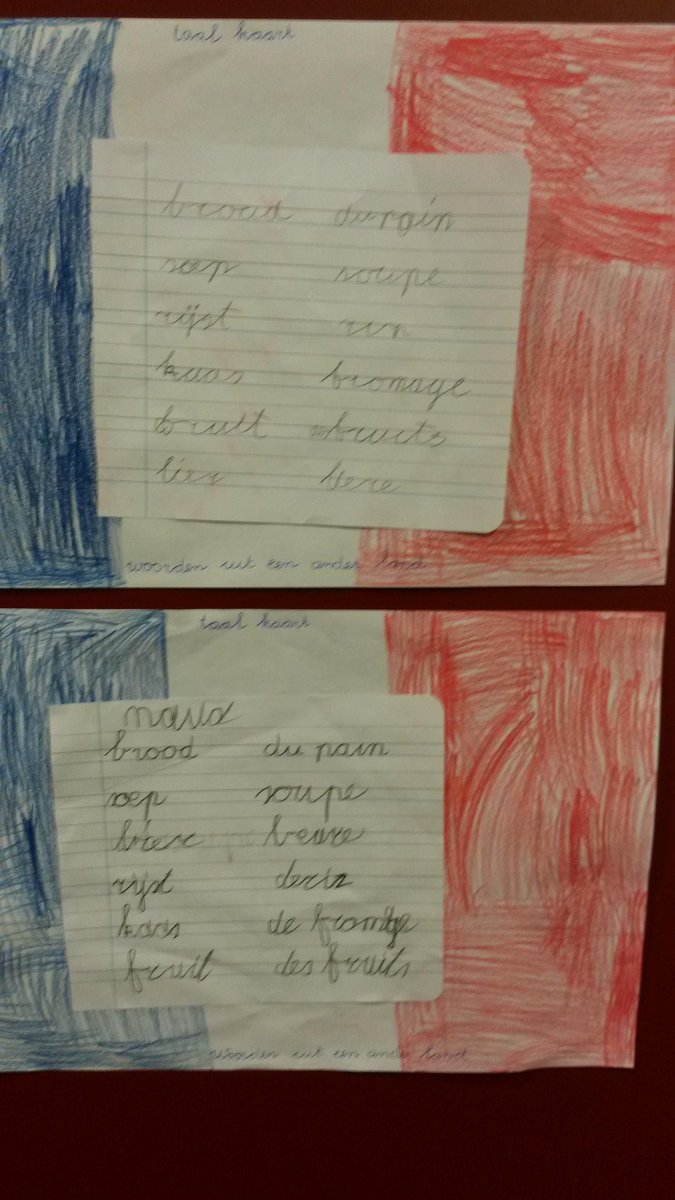 taal kaart
brood du pain
soep soupe
rijst rin
kaas fromage
fruit fructs
bier bere
woorden uit een ander land
taal kaart
maud
brood du pain
soep soupe
bier beare
rijst deriz
kaas de fromge
fruit des fruits
woorden uit een ander land